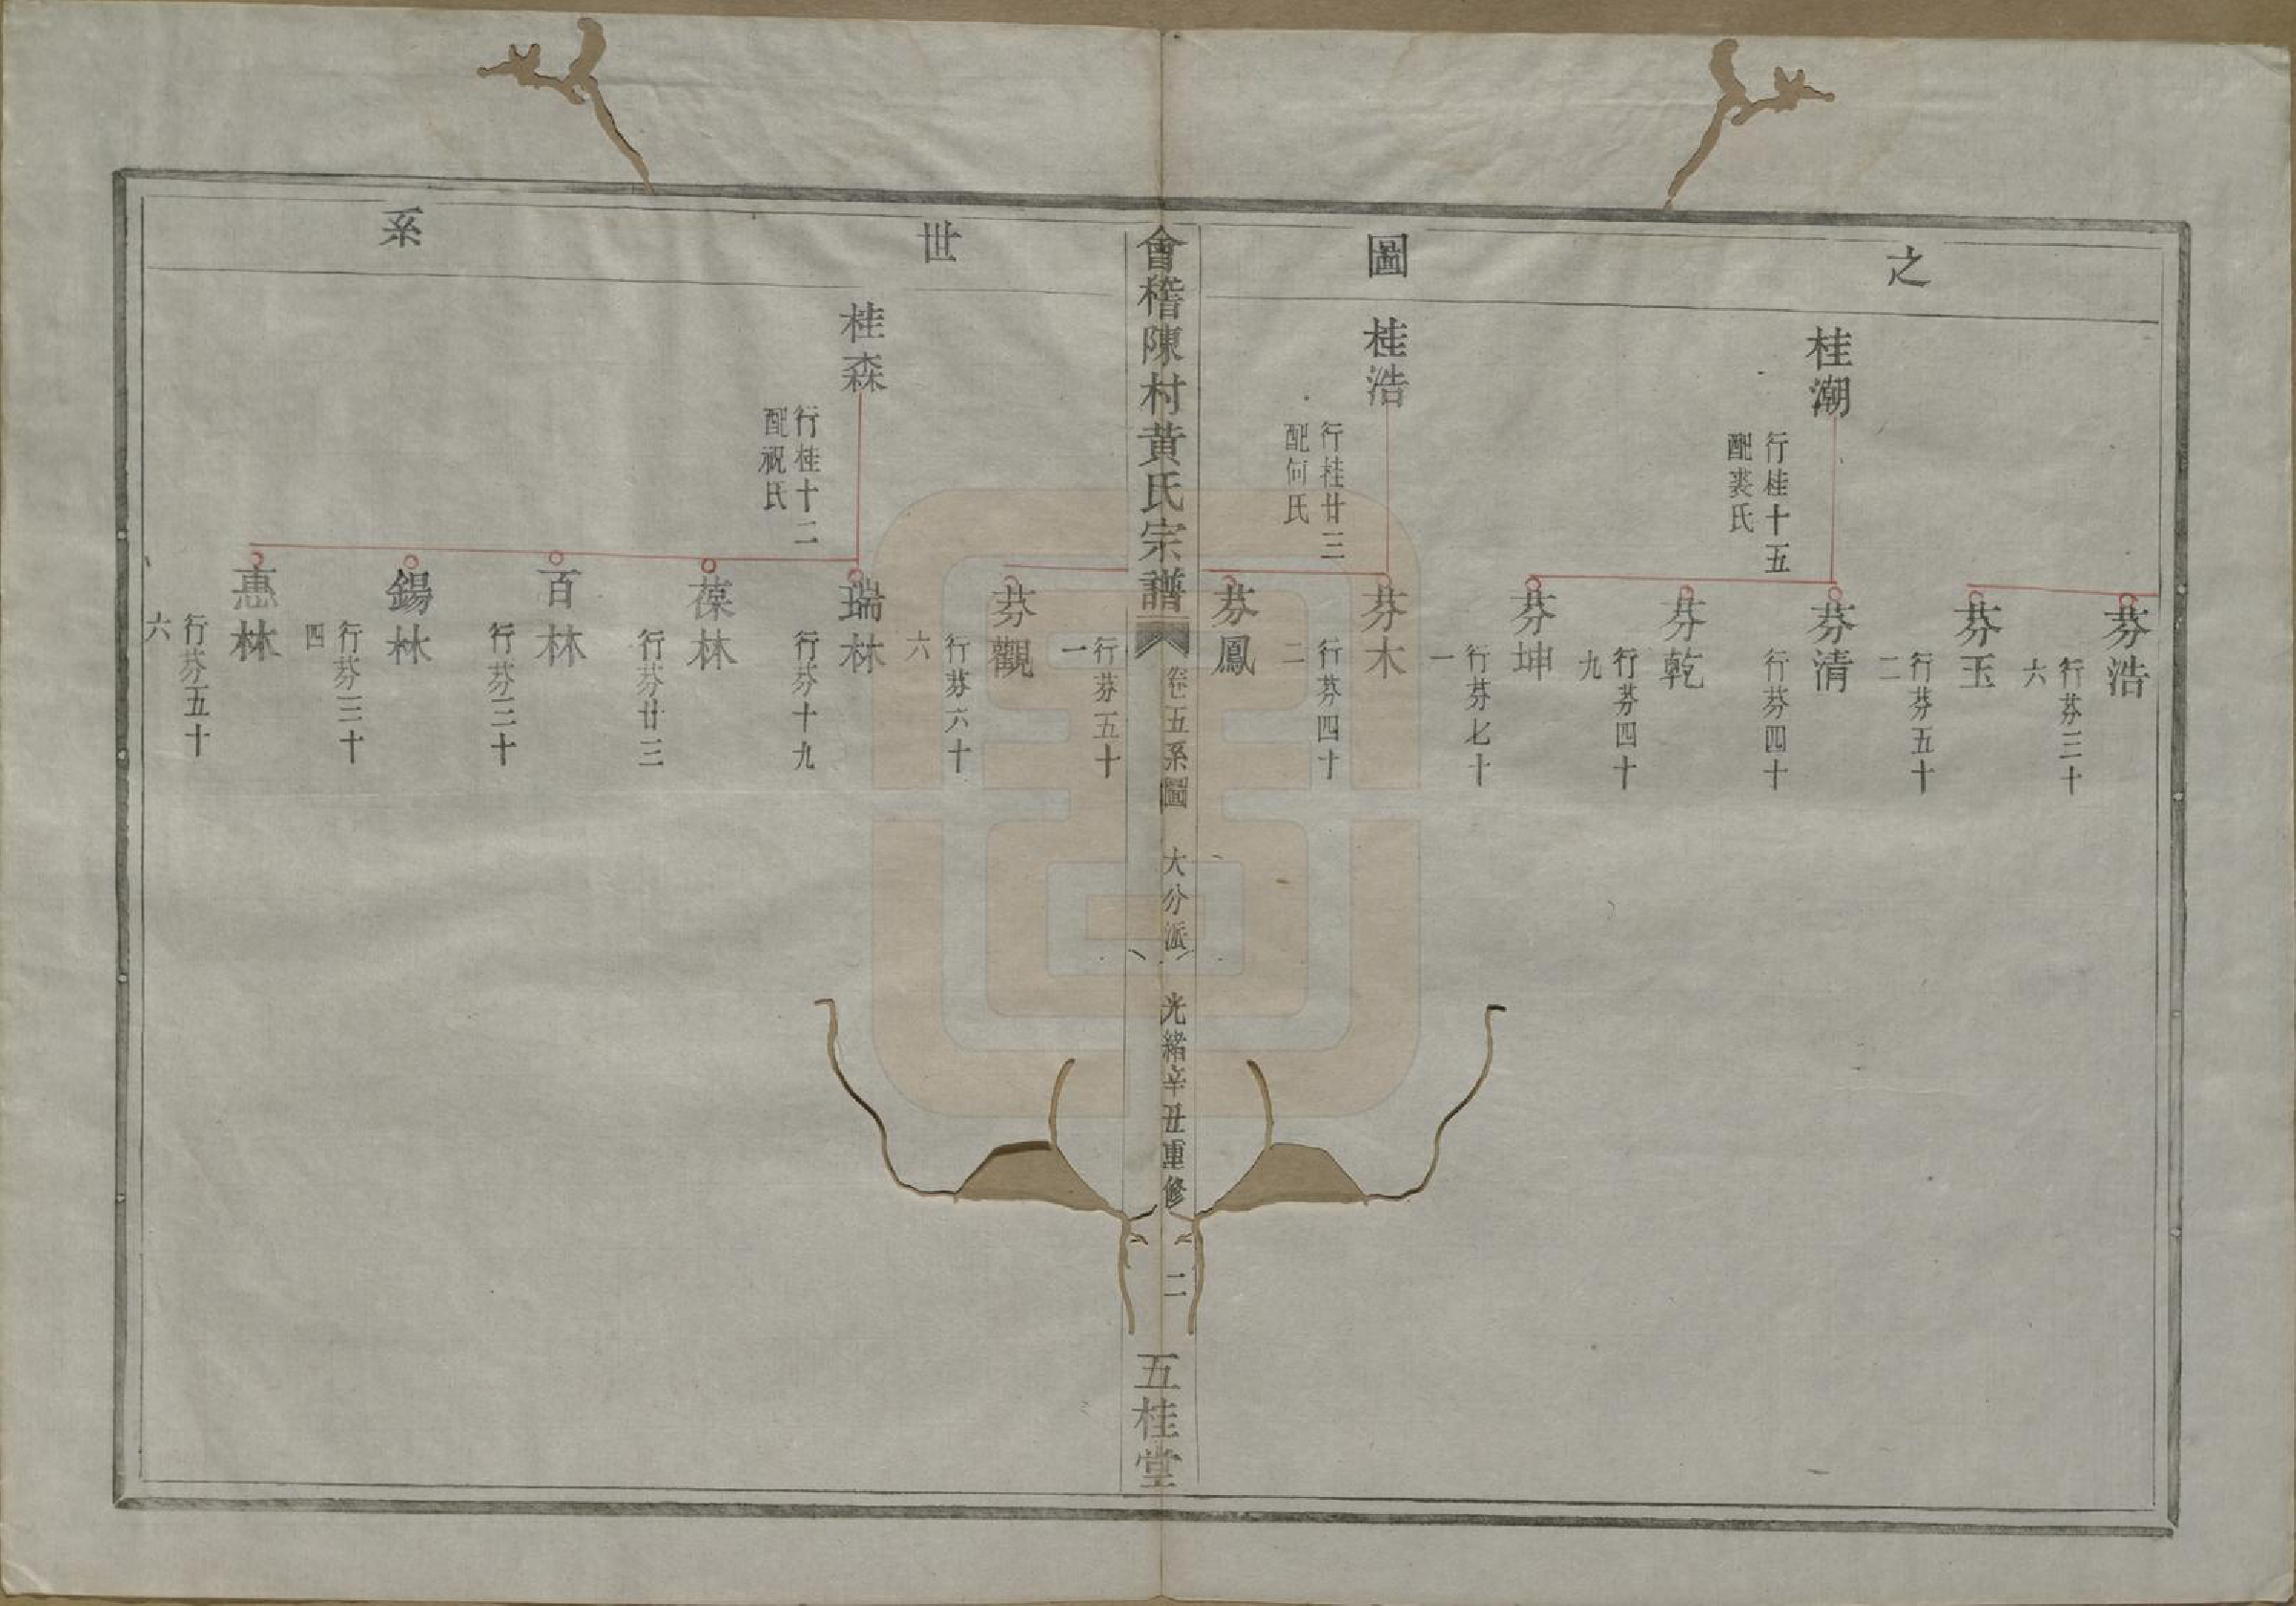 之
圖
芬浩
行芬三十
六
芬玉
行芬五十
二
桂潮
行桂十五
配裘氏
芬清
行芬四十
芬乾
行芬四十
九
芬坤
行芬七十
一
桂浩
行桂廿三
配何氏
芬木
行芬四十
二
芬鳳
會稽陳村黃氏宗譜
卷五系圖
大分派
光緒辛丑重修
二
五桂堂
世
系
行芬五十
一
芬觀
行芬六十
六
桂森
行桂十二
配祝氏
瑞林
行芬十九
葆林
行芬廿三
百林
行芬三十
錫林
行芬三十
四
惠林
行芬五十
六